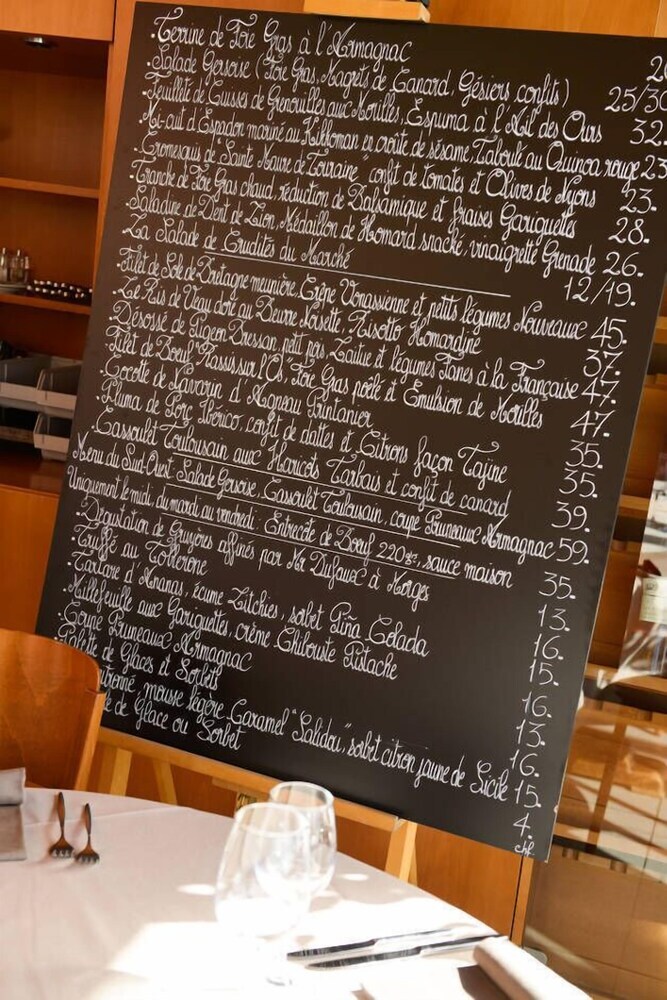 ·Terrine de Foie Gras à l'Armagnac
·Salade Gersoise (Foie Gras, Magrets de Canard, Gésiers confits) 25/30
·Feuilleté de Cuisses de Grenouilles aux Morilles, Espuma à l'Ail des Ours 32.
·Mi-cuit d'Espadon mariné au Kikkoman en croûte de sésame, Taboulé au Quinoa rouge 23
·Cromesquis de "Sainte Maure de Touraine", confit de tomates et Olives de Nyons 23.
·Tranche de Foie Gras chaud, réduction de Balsamique et fraises Gariguettes 28.
·Saladine de Dent de Lion, Médaillon de Homard snacké, vinaigrette Grenade 26.
·La Salade de Crudités du Marché 12/19.
·Filet de Sole de Bretagne meunière, Crêpe Vonassienne et petits légumes Nouveaux 45.
·Le Ris de Veau doré au Beurre Noisette, Risotto Homardine 37.
·Désossé de Pigeon Bressan, petit pois, Laitue et légumes Fanes à la Française 47.
·Filet de Boeuf "Rassis sur l'Os", Foie Gras poêlé et Emulsion de Morilles 47.
·Cocotte de Navarin d'Agneau Printanier 35.
·Pluma de Porc Ibérico, confit de dattes et Citrons façon Tajine 35.
·Cassoulet Toulousain aux Haricots Tarbais et confit de canard 39.
Menu du Sud-Ouest Salade Gersoise, Cassoulet Toulousain, coupe Pruneaux Armagnac 59.
Uniquement le midi, du mardi au vendredi: Entrecôte de Boeuf 220gr, sauce maison 35.
·Dégustation de Gruyères affinés par Mr Dufaux à Morges 13.
·Truffé au Toblerone 16.
·Tartare d'Ananas, écume Litchies, sorbet Piña Colada 15.
·Millefeuille aux Gariguettes, crème Chibouste Pistache 16.
·Coupe Pruneaux Armagnac 13.
·Palette de Glaces et Sorbets 16.
, mousse légère Caramel "Salidou", sorbet citron jaune de Sicile 15.
de Glace ou Sorbet 4.
chf.